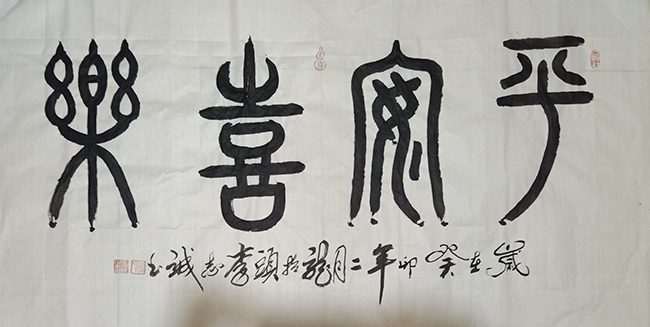 平安喜樂
歲在癸卯年二月龍抬頭李志誠书